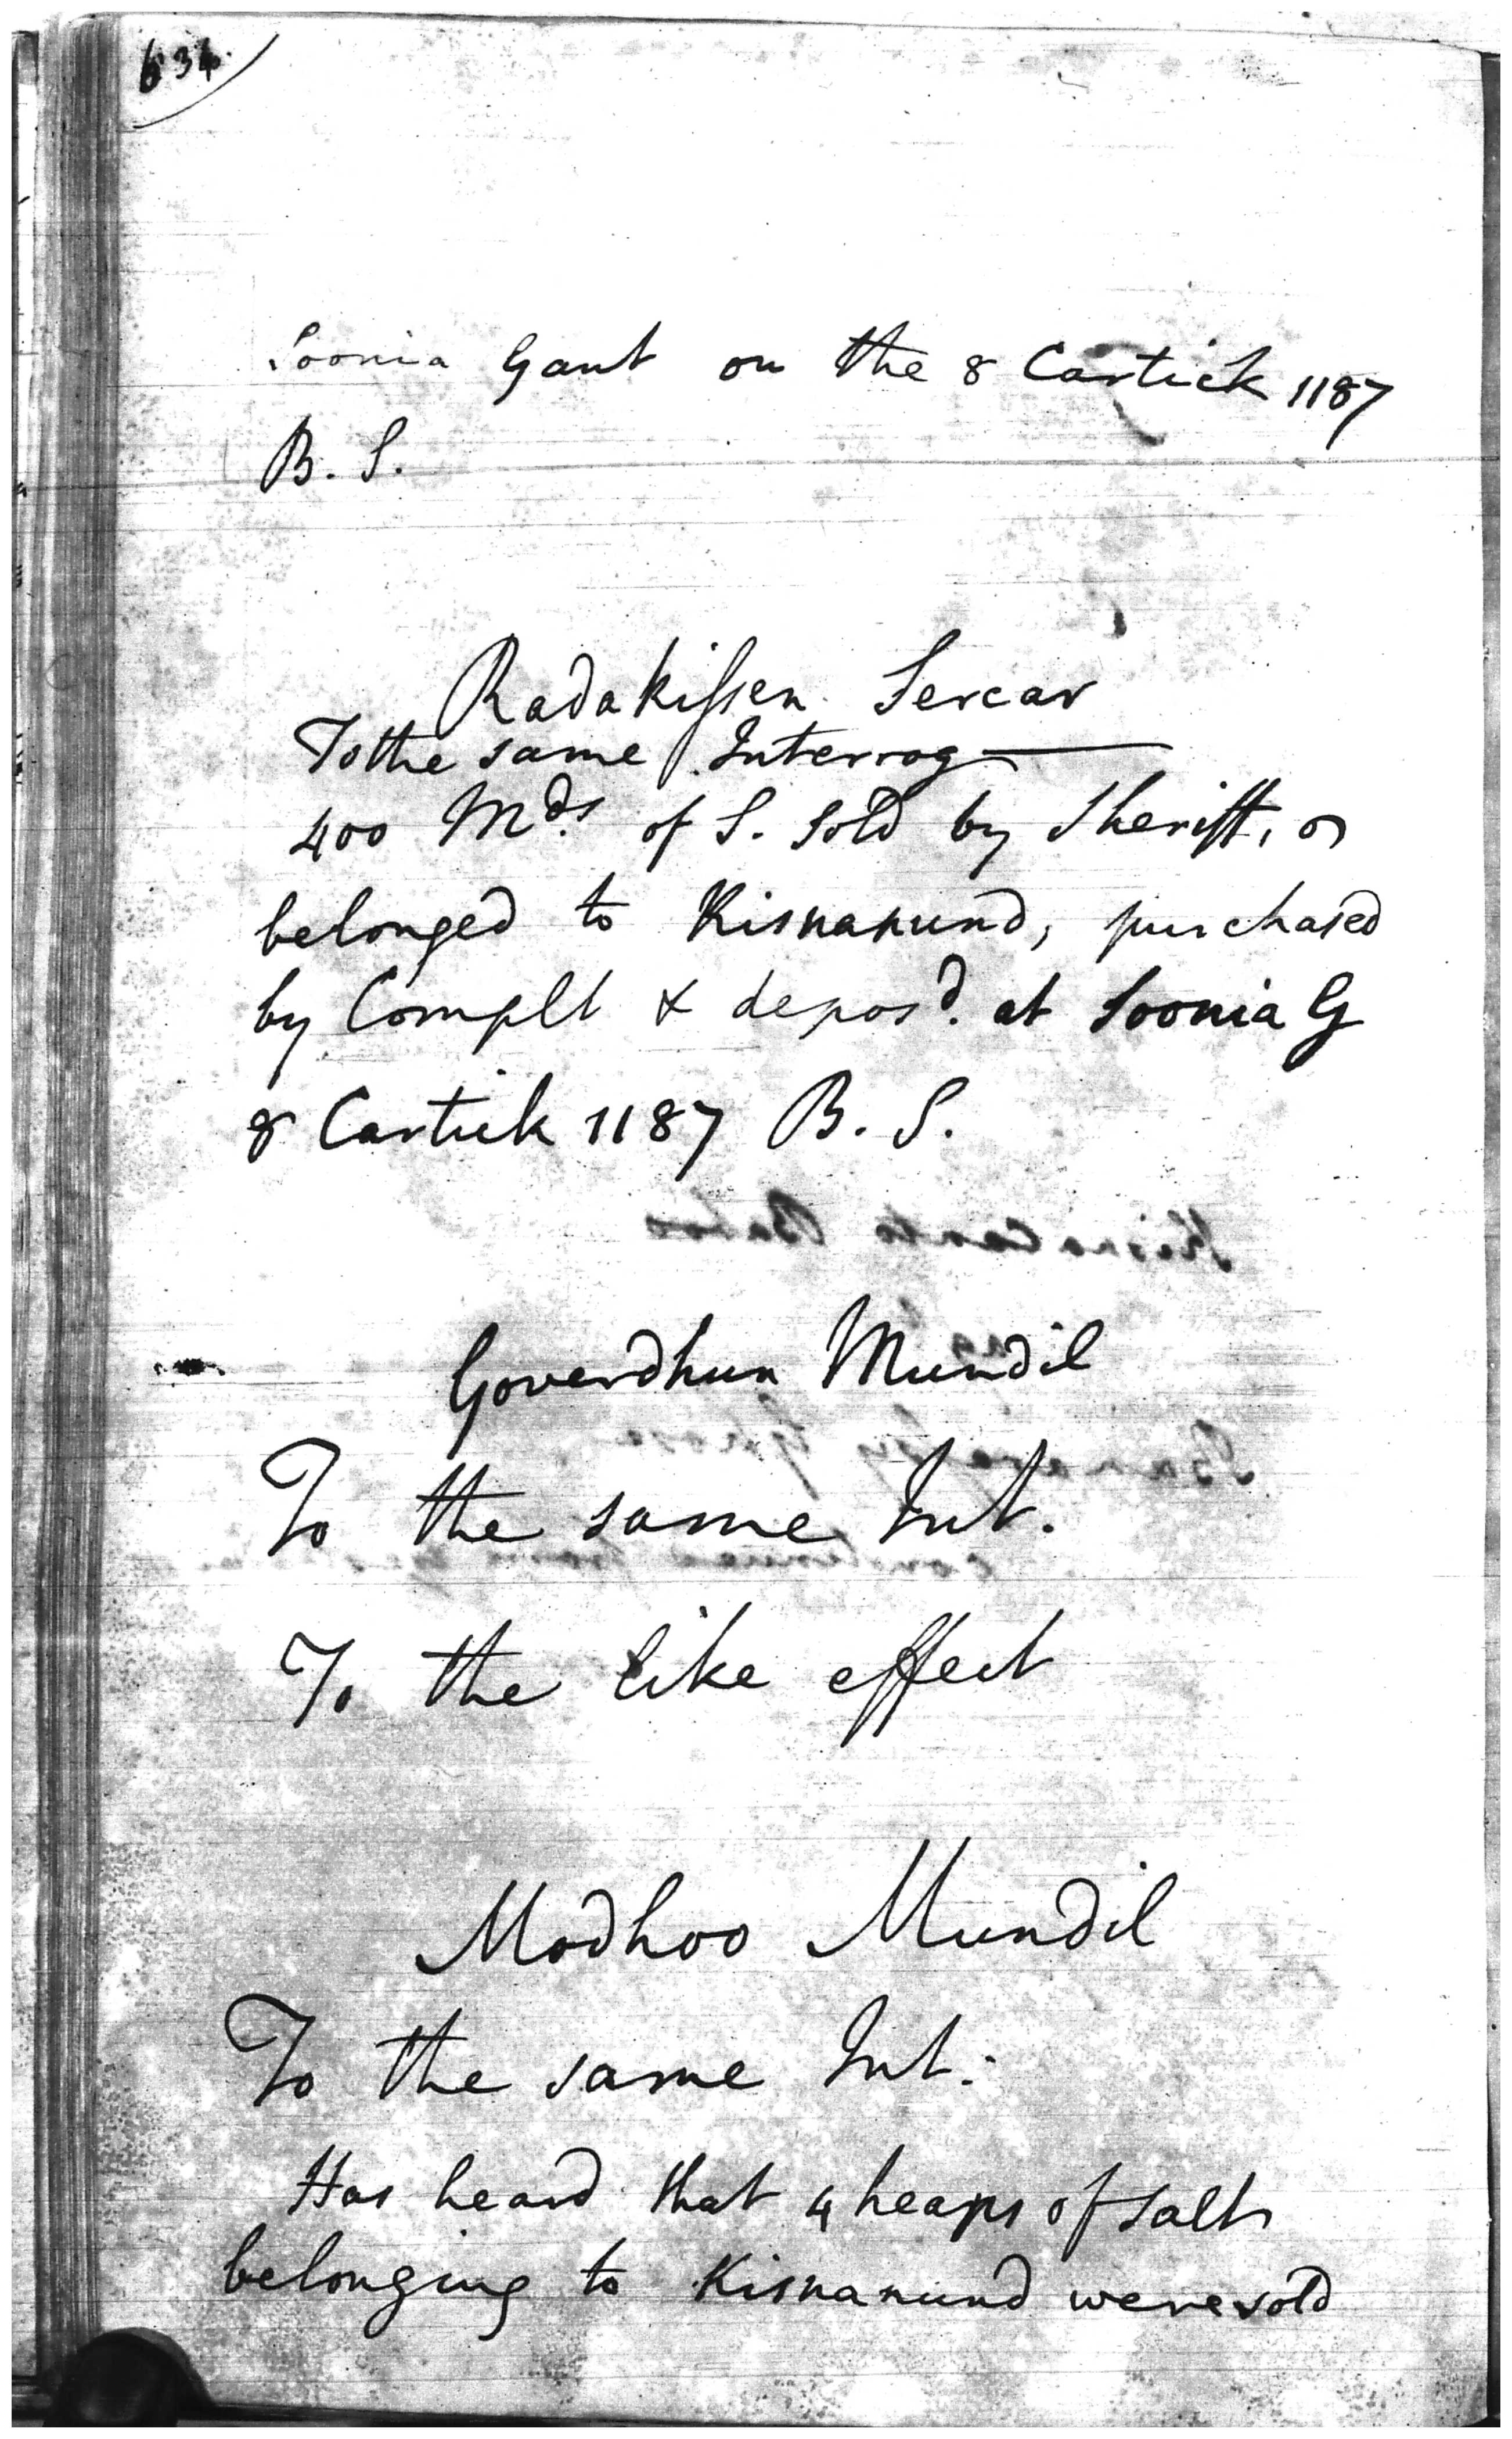 634.
Soonia Gaut on the 8 Cartick 1187
B. S.
Radakissen Sercar
To the same Interrog
400 Mds. of S. sold by Sheriff, as
belonged to Kisnanund, purchased
by Complt & deposd. at Soonia G
8 Cartick 1187 B. S.
Goverdhun Mundil
To the same Int.
To the like effect
Modhoo Mundil
To the same Int:
Has heard that 4 heaps of salt
belonging to Kisnanund were sold